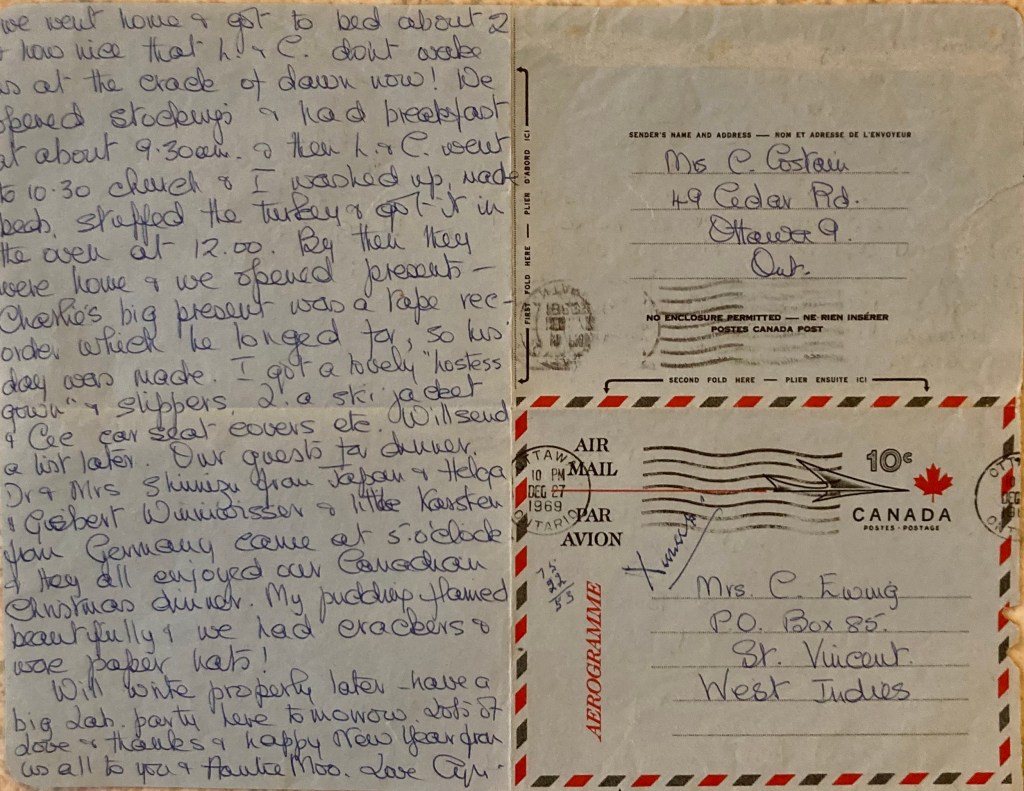 we went home & got to bed about 2
& how nice that L. & C. don't wake
us at the crack of dawn now! We
opened stockings & had breakfast
at about 9.30am. & then L. & C. went
to 10.30 church & I washed up, made
beds, stuffed the turkey & got it in
the oven at 12.00. By then they
were home & we opened presents -
Charlie's big present was a tape rec-
order which he longed for, so his
day was made. I got a lovely "hostess
gown" & slippers, L. a ski jacket
& Cee car seat covers etc. Will send
a list later. Our guests for dinner,
Dr & Mrs Shimizu from Japan & Helga
& Gisbert Winnewisser & little Karsten
from Germany came at 5.o'clock
& they all enjoyed our Canadian
Christmas dinner. My pudding flamed
beautifully & we had crackers &
wore paper hats!
Will write properly later - have a
big Lab. party here tomorrow. Lots of
love & thanks & happy New Year from
us all to you & Auntie Moo. Love Cyn.
SENDER'S NAME AND ADDRESS — NOM ET ADRESSE DE L'ENVOYEUR
Mrs C. Costain
49 Cedar Rd.
Ottawa 9.
Ont.
FIRST FOLD HERE — PLIER D'ABORD ICI
NO ENCLOSURE PERMITTED — NE RIEN INSÉRER
POSTES CANADA POST
SECOND FOLD HERE — PLIER ENSUITE ICI
AIR
MAIL
PAR
AVION
OTTAWA
10 PM
DEC 27
1969
ONTARIO
10c
CANADA
POSTES · POSTAGE
AEROGRAMME
Mrs. C. Ewing
P.O. Box 85.
St. Vincent.
West Indies